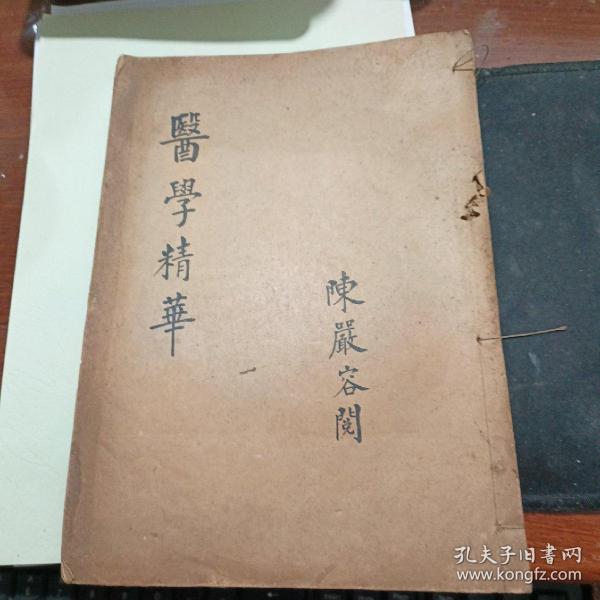 醫學精華
陳嚴容閱
孔夫子旧书网
www.kongfz.com